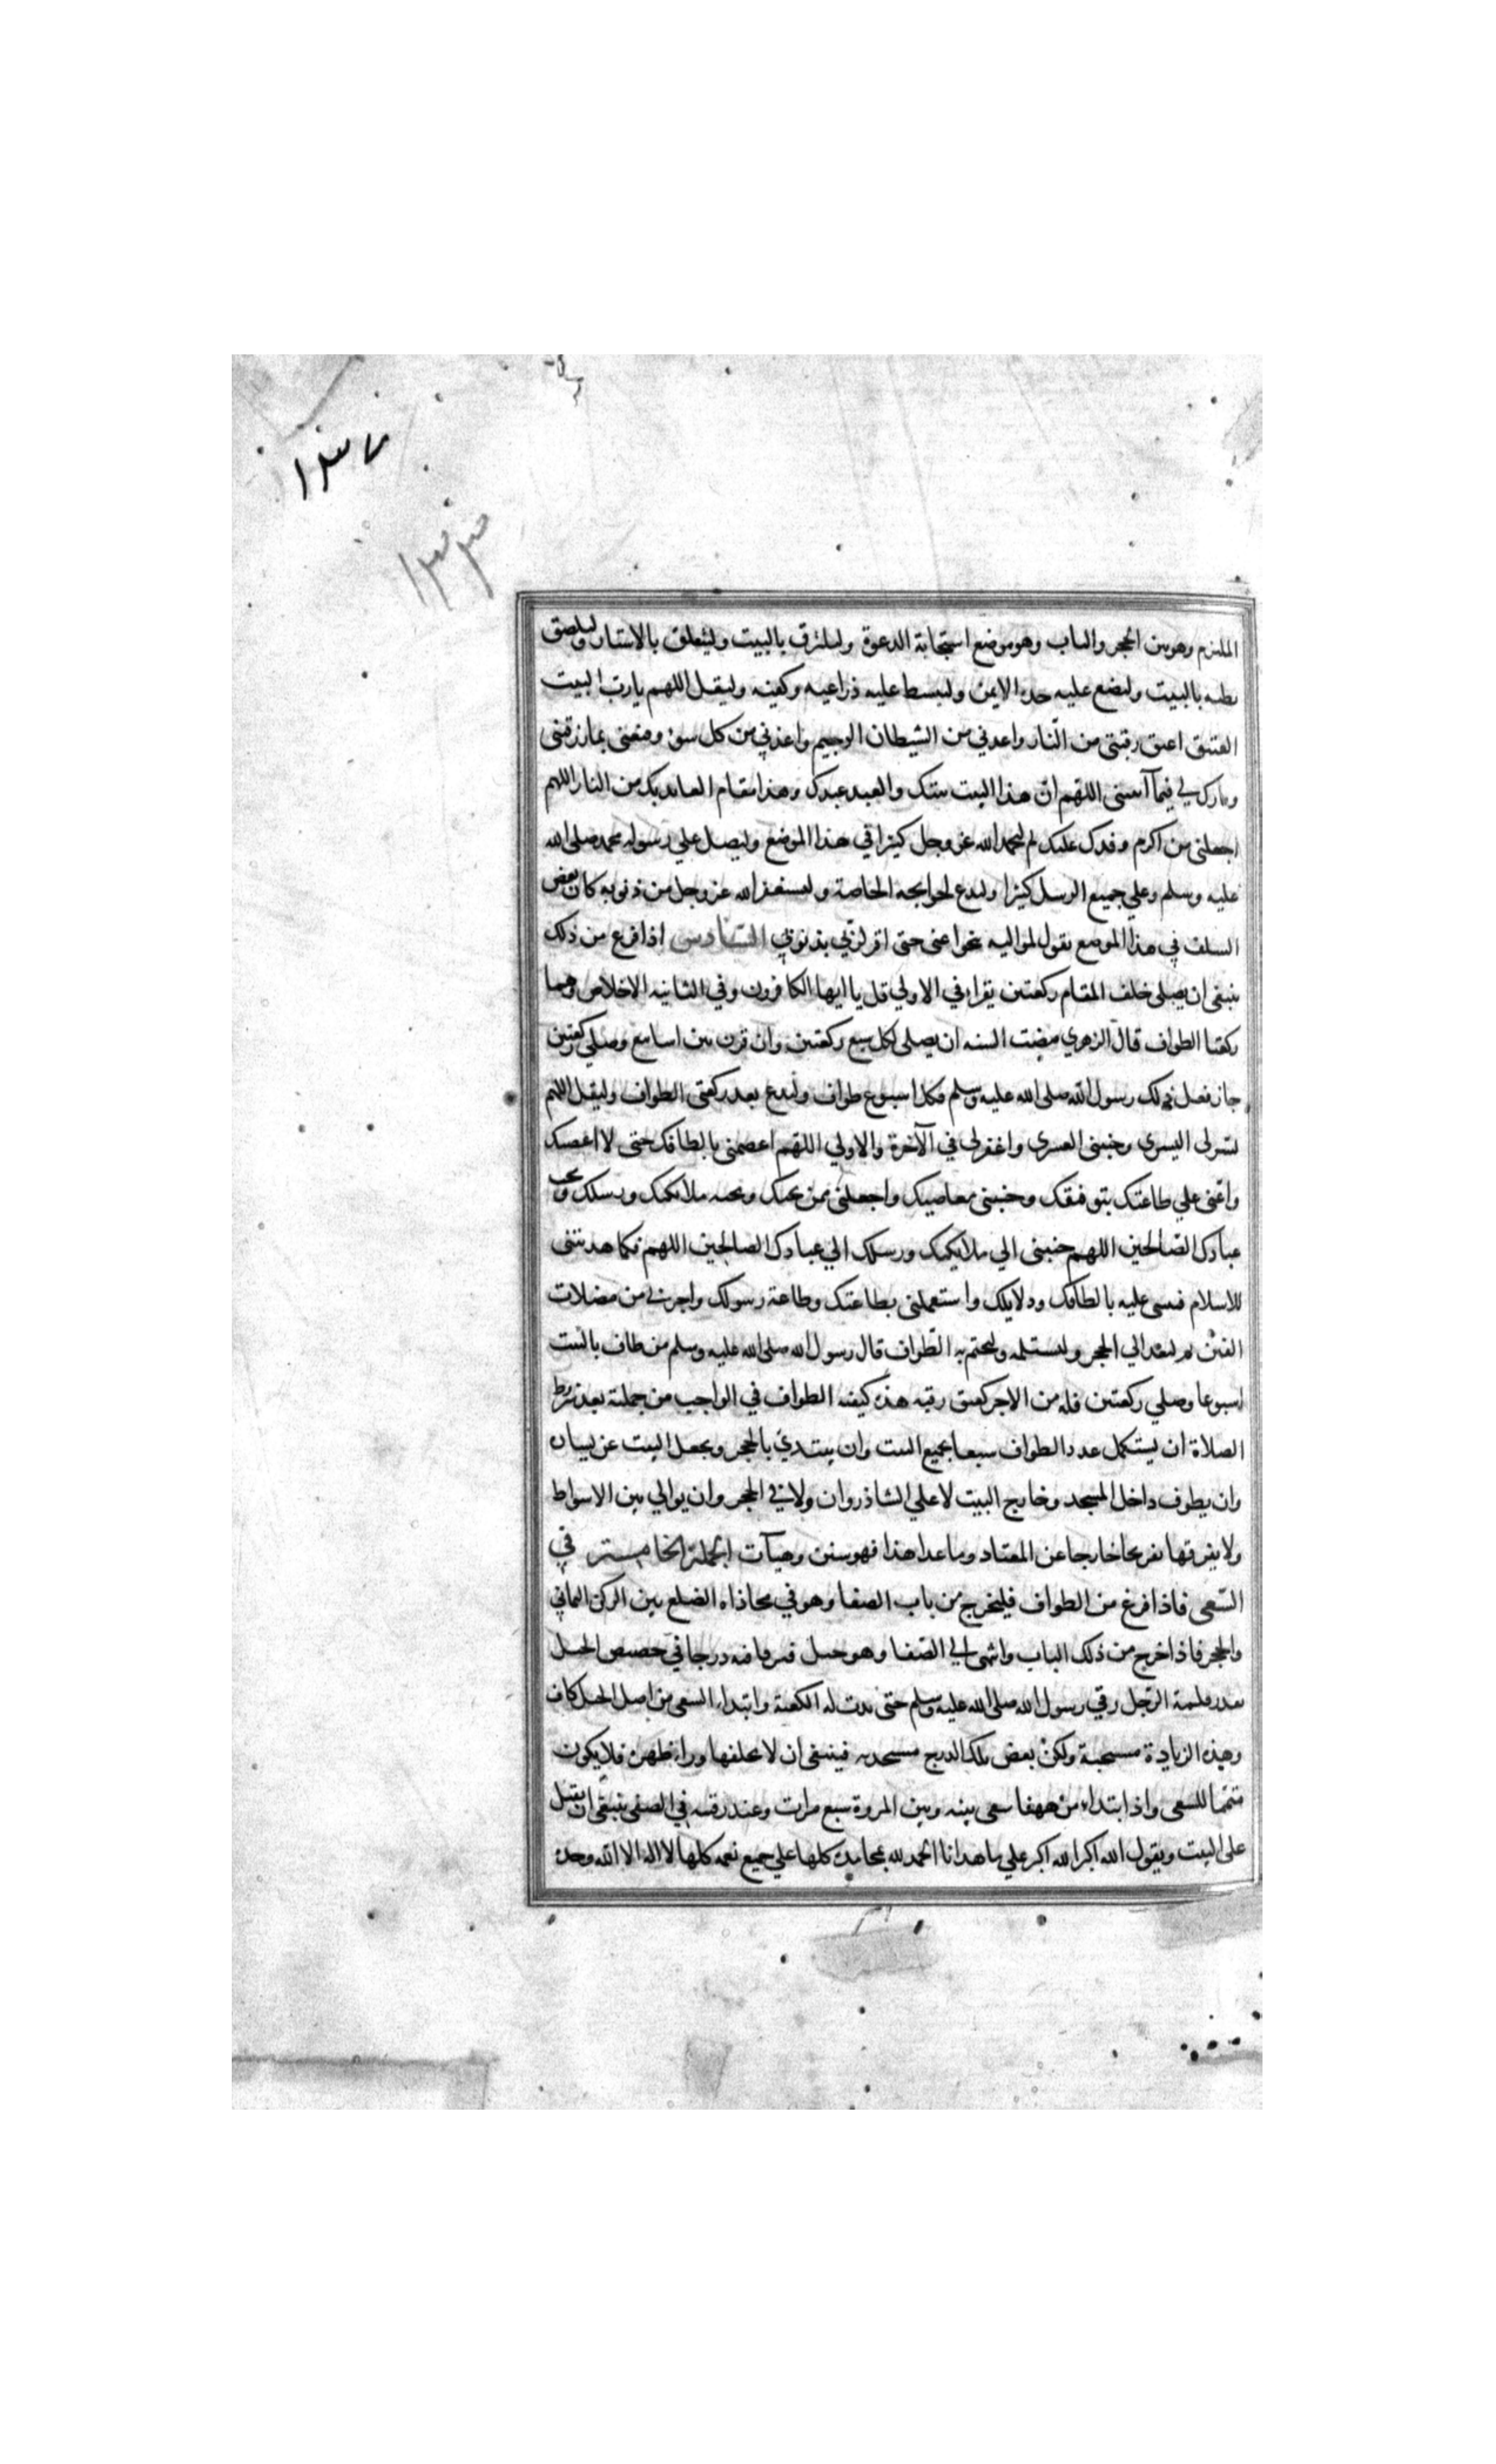 ١٣٧
١٣٣
الملتزم وهو بين الحجر والباب وهو موضع استجابة الدعوة وليلتزق بالبيت وليتعلق بالاستار وليلصق
بطنه بالبيت وليضع عليه خده الايمن وليبسط عليه ذراعيه وكفيه وليقل اللهم يا رب البيت
العتيق اعتق رقبتي من النار واعذني من الشيطان الرجيم واعذني من كل سوء وقنعني بما رزقتني
وبارك لي فيما آتيتني اللهم ان هذا البيت بيتك والعبد عبدك وهذا مقام العائذ بك من النار اللهم
اجعلني من اكرم وفدك عليك ثم ليحمد الله عز وجل كثيرا في هذا الموضع وليصل علي رسوله محمد صلى الله
عليه وسلم وعلي جميع الرسل كثيرا وليدع لحوايجه الخاصة وليستغفر الله عز وجل من ذنوبه كان بعض
السلف في هذا الموضع يقول لمواليه تنحوا عني حتى اقر لربي بذنوبي السادس اذا فرغ من ذلك
ينبغي ان يصلي خلف المقام ركعتين يقرا في الاولي قل يا ايها الكافرون وفي الثانيه الاخلاص وهما
ركعتا الطواف قال الزهري مضت السنه ان يصلى لكل سبع ركعتين وان قرن بين اسابيع وصلي ركعتين
جاز فعل ذلك رسول الله صلى الله عليه وسلم فكل اسبوع طواف وليدع بعد ركعتي الطواف وليقل اللهم
يسر لى اليسري وجنبني العسري واغفر لي في الآخرة والاولي اللهم اعصمني بالطافك حتى لا اعصيك
واعني علي طاعتك بتوفيقك وجنبني معاصيك واجعلني ممن يحبك ويحب ملائكتك ورسلك ويحب
عبادك الصالحين اللهم حببني الي ملايكتك ورسلك الي عبادك الصالحين اللهم فكما هديتني
للاسلام فثبتني عليه بالطافك ودلايلك واستعملني بطاعتك وطاعة رسولك واجرني من مضلات
الفتن ثم ليعد الي الحجر وليستلمه وليختم به الطواف قال رسول الله صلى الله عليه وسلم من طاف بالبيت
اسبوعا وصلي ركعتين فله من الاجر كعتق رقبه هذه كيفيه الطواف في الواجب من جملته بعد شروط
الصلاة ان يستكمل عدد الطواف سبعا بجميع البيت وان يبتدئ بالحجر ويجعل البيت عن يساره
وان يطوف داخل المسجد وخارج البيت لا علي الشاذروان ولا في الحجر وان يوالي بين الاشواط
ولا يفرقها تفريقا خارجا عن المعتاد وما عدا هذا فهو سنن وهيآت الجملة الخامسة في
السعي فاذا فرغ من الطواف فليخرج من باب الصفا وهو في محاذاه الضلع بين الركن اليماني
والحجر فاذا خرج من ذلك الباب وانتهى الي الصفا وهو جبل فيرقا فيه درجا في حضيض الجبل
بقدر قامة الرجل رقي رسول الله صلى الله عليه وسلم حتى بدت له الكعبة وابتداء السعي من اصل الجبل كاف
وهذه الزيادة مستحبة ولكن بعض تلك الدرج مستحدثه فينبغي ان لا يخلفها وراء ظهره فلا يكون
متمما للسعي واذا ابتداء من ههنا سعى بينه وبين المروة سبع مرات وعند رقيه في الصفى ينبغي ان يقبل
على البيت ويقول الله اكبر الله اكبر علي ما هدانا الحمد لله بمحامده كلها علي جميع نعمه كلها لا اله الا الله وحده